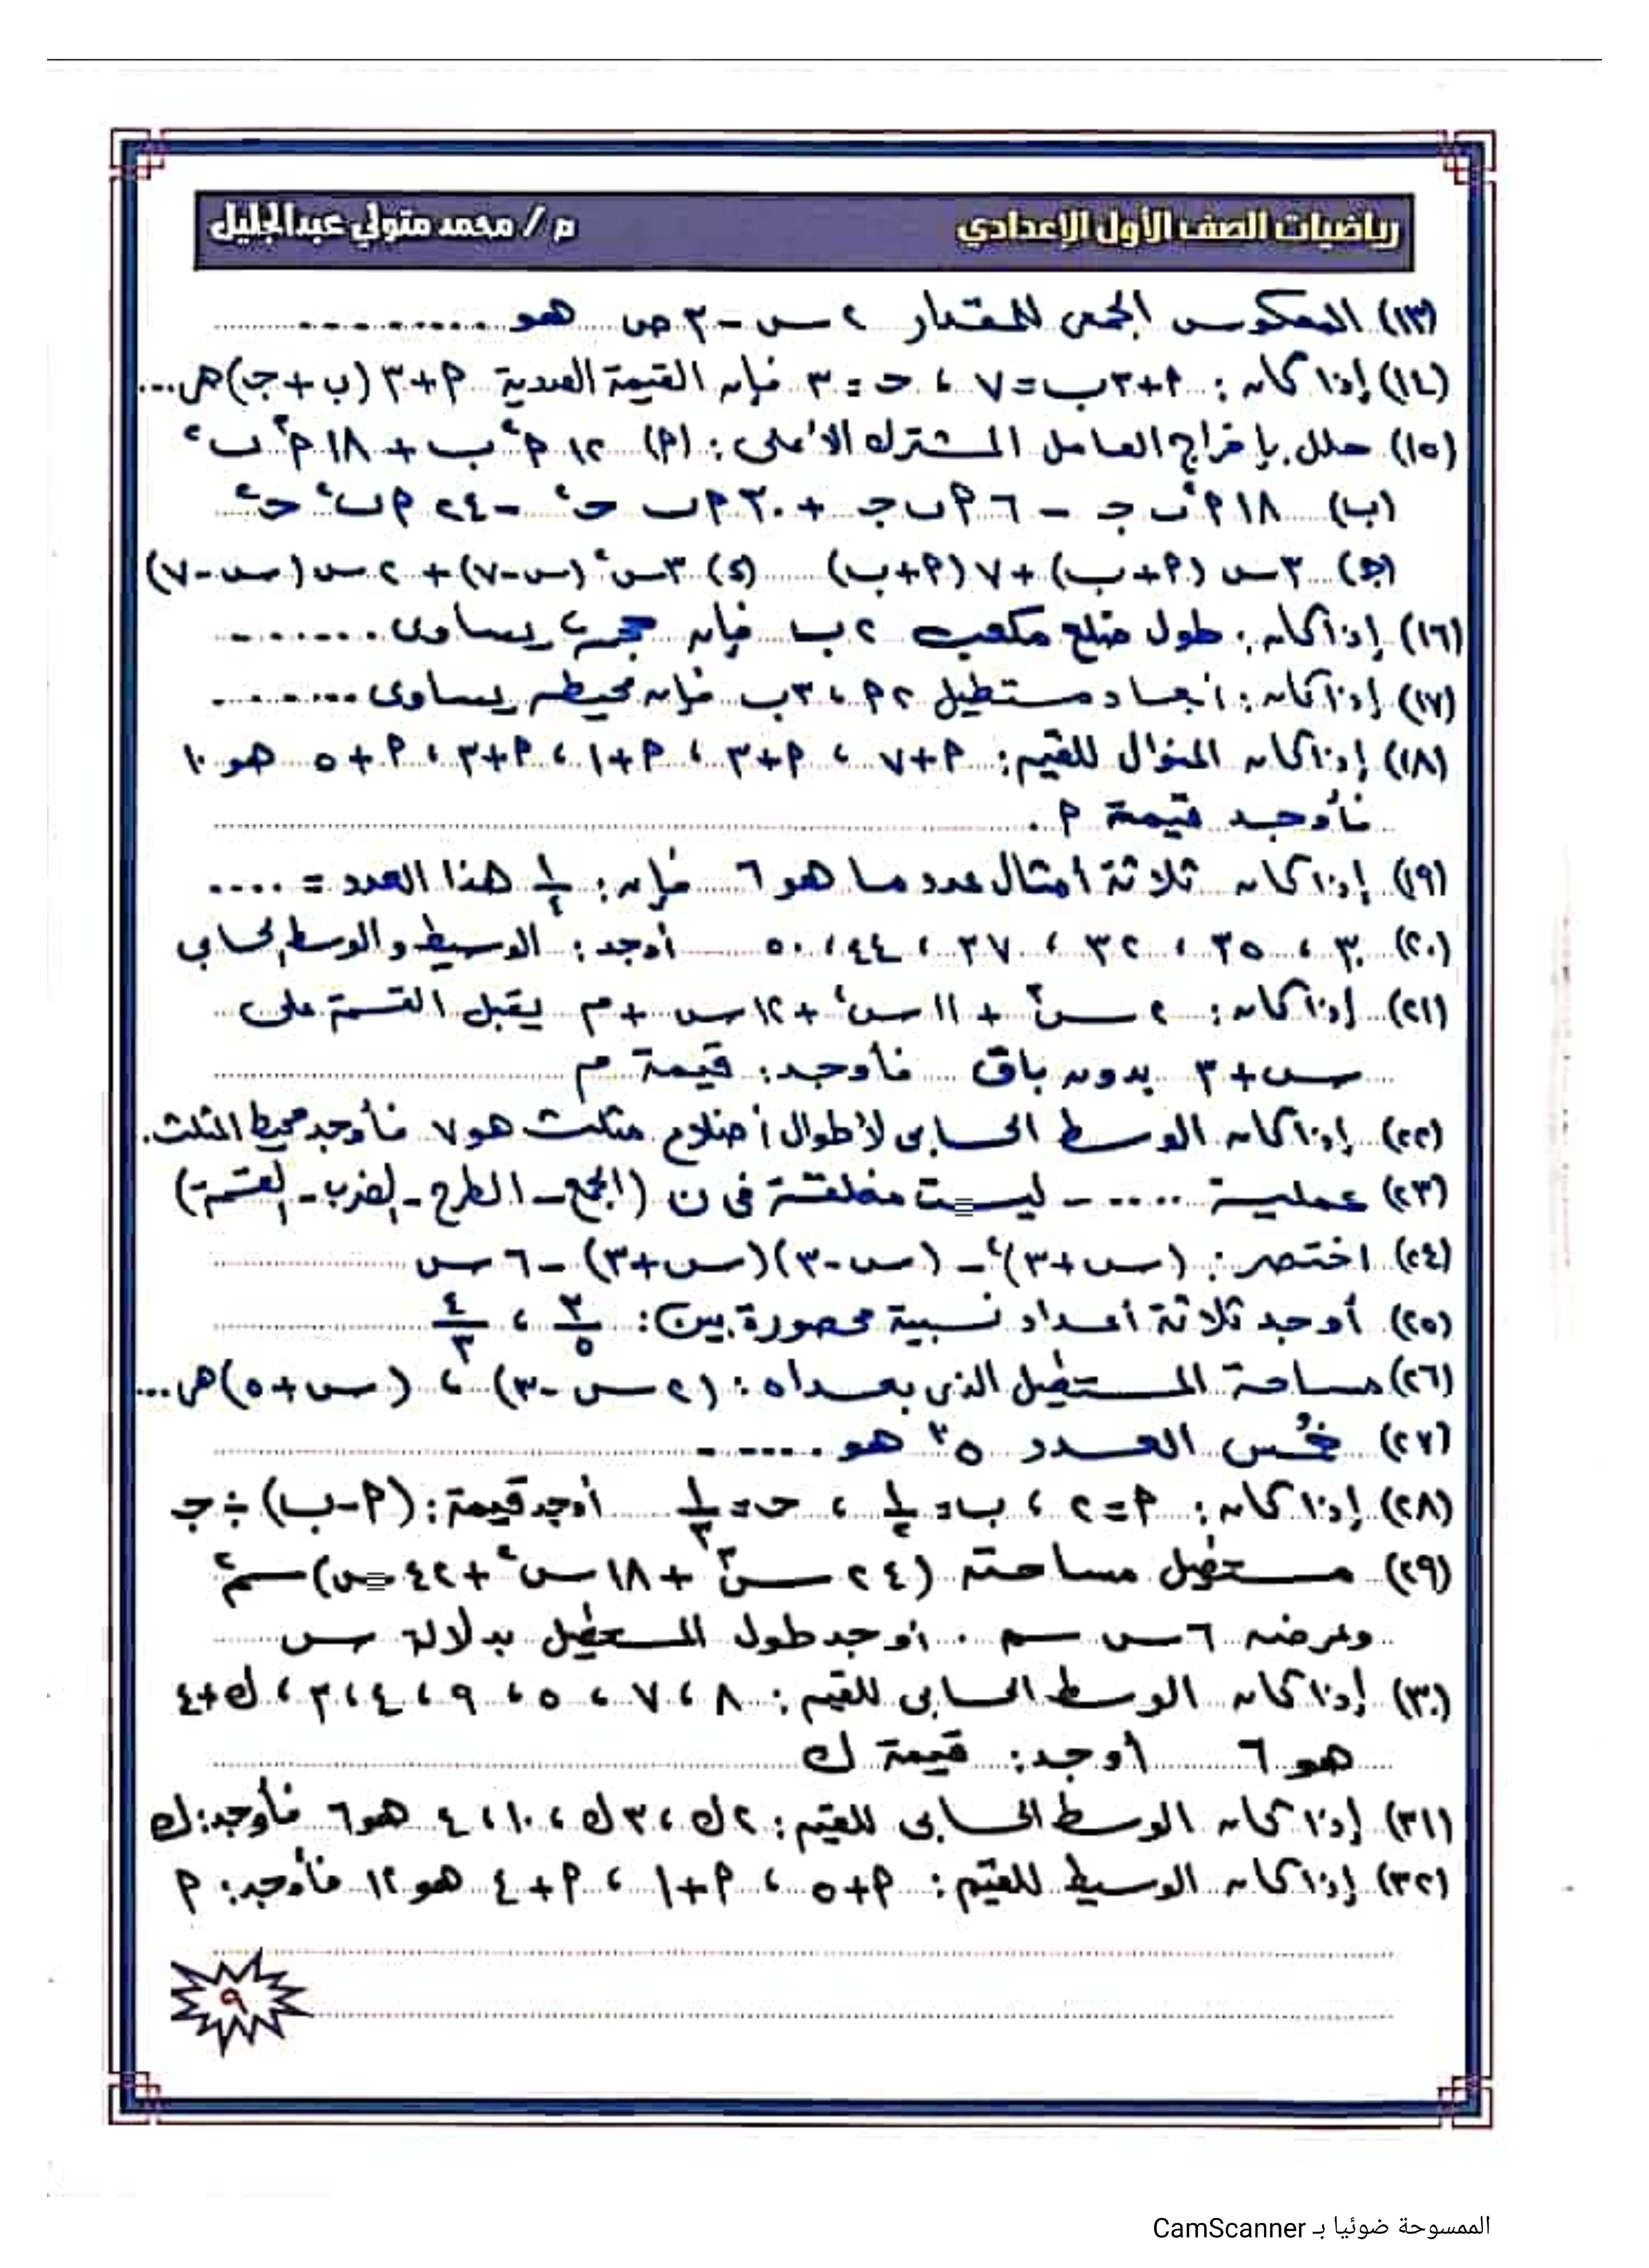 رياضيات الصف الأول الإعدادي
م / محمد متولي عبدالجليل
(١٣) المعكوس الجمعى للمقدار ٢ س - ٣ ص هو .........
(١٤) إذا كان : ٢ + ٣ ب = ٧ ، حـ = ٣ فإن القيمة العددية ٢ + ٣ (ب + جـ) هى ...
(١٥) حلل بإخراج العامل المشترك الأعلى : (٢) ١٢ ٢^٢ ب + ١٨ ٢^٣ ب^٢
(ب) ١٨ ٢^٢ ب جـ - ٦ ٢ ب جـ + ٣٠ ٢ ب حـ^٢ - ٢٤ ٢ ب^٢ حـ^٢
(جـ) ٣ س (٢ + ب) + ٧ (٢ + ب) (د) ٣ س^٢ (س - ٧) + ٢ س (س - ٧)
(١٦) إذا كان : طول ضلع مكعب ٢ ب فإن حجمه يساوى .......
(١٧) إذا كان : أبعاد مستطيل ٢ ٢ ، ٣ ب فإن محيطه يساوى .......
(١٨) إذا كان المنوال للقيم : ٢ + ٧ ، ٢ + ٣ ، ٢ + ١ ، ٢ + ٣ ، ٢ + ٥ هو ١٠
فأوجد قيمة ٢ .
(١٩) إذا كان ثلاثة أمثال عدد ما هو ٦ فإن : ١/٤ هذا العدد = ....
(٢٠) ٣٠ ، ٣٥ ، ٣٢ ، ٣٧ ، ٤٤ ، ٥٠ أوجد : الوسيط والوسط الحسابى
(٢١) إذا كان : ٢ س^٣ + ١١ س^٢ + ١٢ س + م يقبل القسمة على
س + ٣ بدون باق فأوجد : قيمة م
(٢٢) إذا كان الوسط الحسابى لأطوال أضلاع مثلث هو ٧ فأوجد محيط المثلث .
(٢٣) عملية ..... ليست مغلقة فى ن (الجمع - الطرح - الضرب - القسمة)
(٢٤) اختصر : (س + ٣)^٢ - (س - ٣) (س + ٣) - ٦ س
(٢٥) أوجد ثلاثة أعداد نسبية محصورة بين : ٣/٥ ، ٤/٣
(٢٦) مساحة المستطيل الذى بعداه : (٢ س - ٣) ، (س + ٥) هى ...
(٢٧) خُمس العدد ٥^٣ هو .....
(٢٨) إذا كان : ٢ = ٢ ، ب = ١/٢ ، حـ = ١/٣ أوجد قيمة : (٢ - ب) ÷ جـ
(٢٩) مستطيل مساحته (٢٤ س^٣ + ١٨ س^٢ + ٤٢ س) سم^٢
وعرضه ٦ س سم . أوجد طول المستطيل بدلالة س
(٣٠) إذا كان الوسط الحسابى للقيم : ٨ ، ٧ ، ٥ ، ٩ ، ٤ ، ٣ ، ك + ٤
هو ٦ أوجد : قيمة ك
(٣١) إذا كان الوسط الحسابى للقيم : ٢ ك ، ٣ ك ، ١٠ ، ٤ هو ٦ فأوجد : ك
(٣٢) إذا كان الوسيط للقيم : ٢ + ٥ ، ٢ + ١ ، ٢ + ٤ هو ١٢ فأوجد : ٢
٩
الممسوحة ضوئيا بـ CamScanner